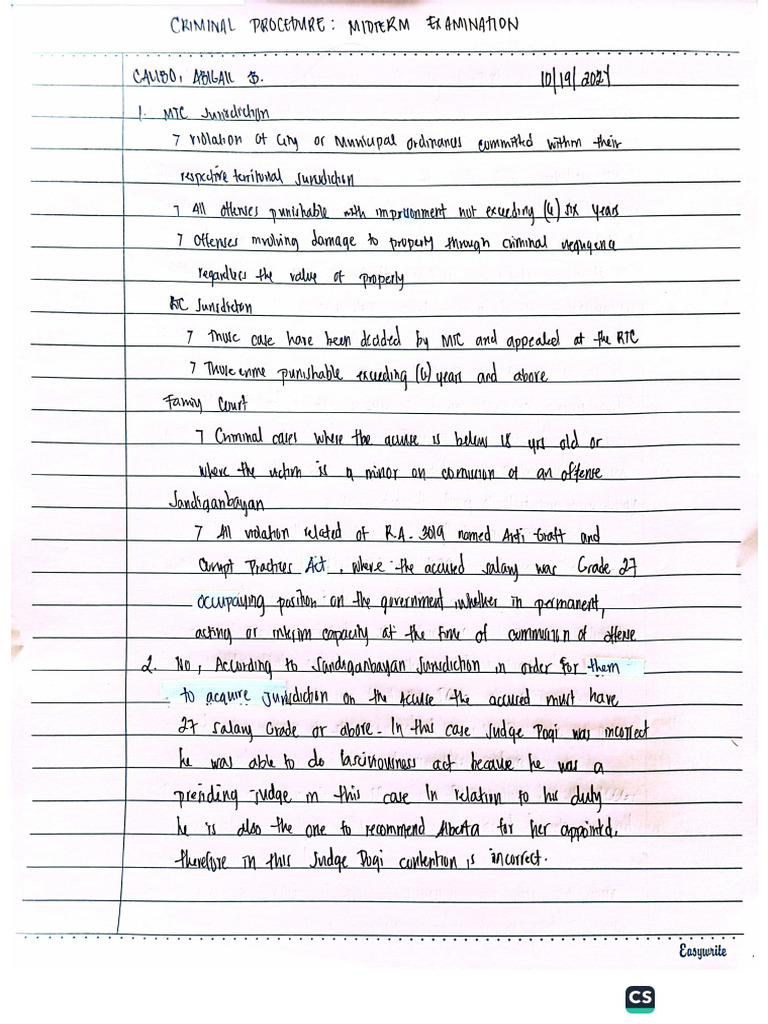 CRIMINAL PROCEDURE: MIDTERM EXAMINATION
CALIBO, ABIGAIL B. 10/19/2024
1. MTC Jurisdiction
7 violation of City or Municipal ordinances committed within their
respective territorial jurisdiction
7 All offenses punishable with imprisonment not exceeding (6) six years
7 Offenses involving damage to property through criminal negligence
regardless the value of property
RTC Jurisdiction
7 Those case have been decided by MTC and appealed at the RTC
7 Those crime punishable exceeding (6) years and above
Family Court
7 Criminal cases where the accuse is below 18 yrs old or
where the victim is a minor on comission of an offense
Sandiganbayan
7 All violation related of R.A. 3019 named Anti Graft and
Corrupt Practices Act, where the accused salary was Grade 27
occupaying position on the government whether in permanent,
acting or interim capacity at the time of commission of offense
2. No, According to Sandiganbayan Jurisdiction in order for them
to acquire Jurisdiction on the accuse the accused must have
27 salary Grade or above. In this case Judge Pogi was incorrect
he was able to do lasciviousness act because he was a
presiding judge in this case In relation to his duty
he is also the one to recommend Alberta for her appointd.
therefore in this Judge Pogi contention is incorrect.
Easywrite
CS